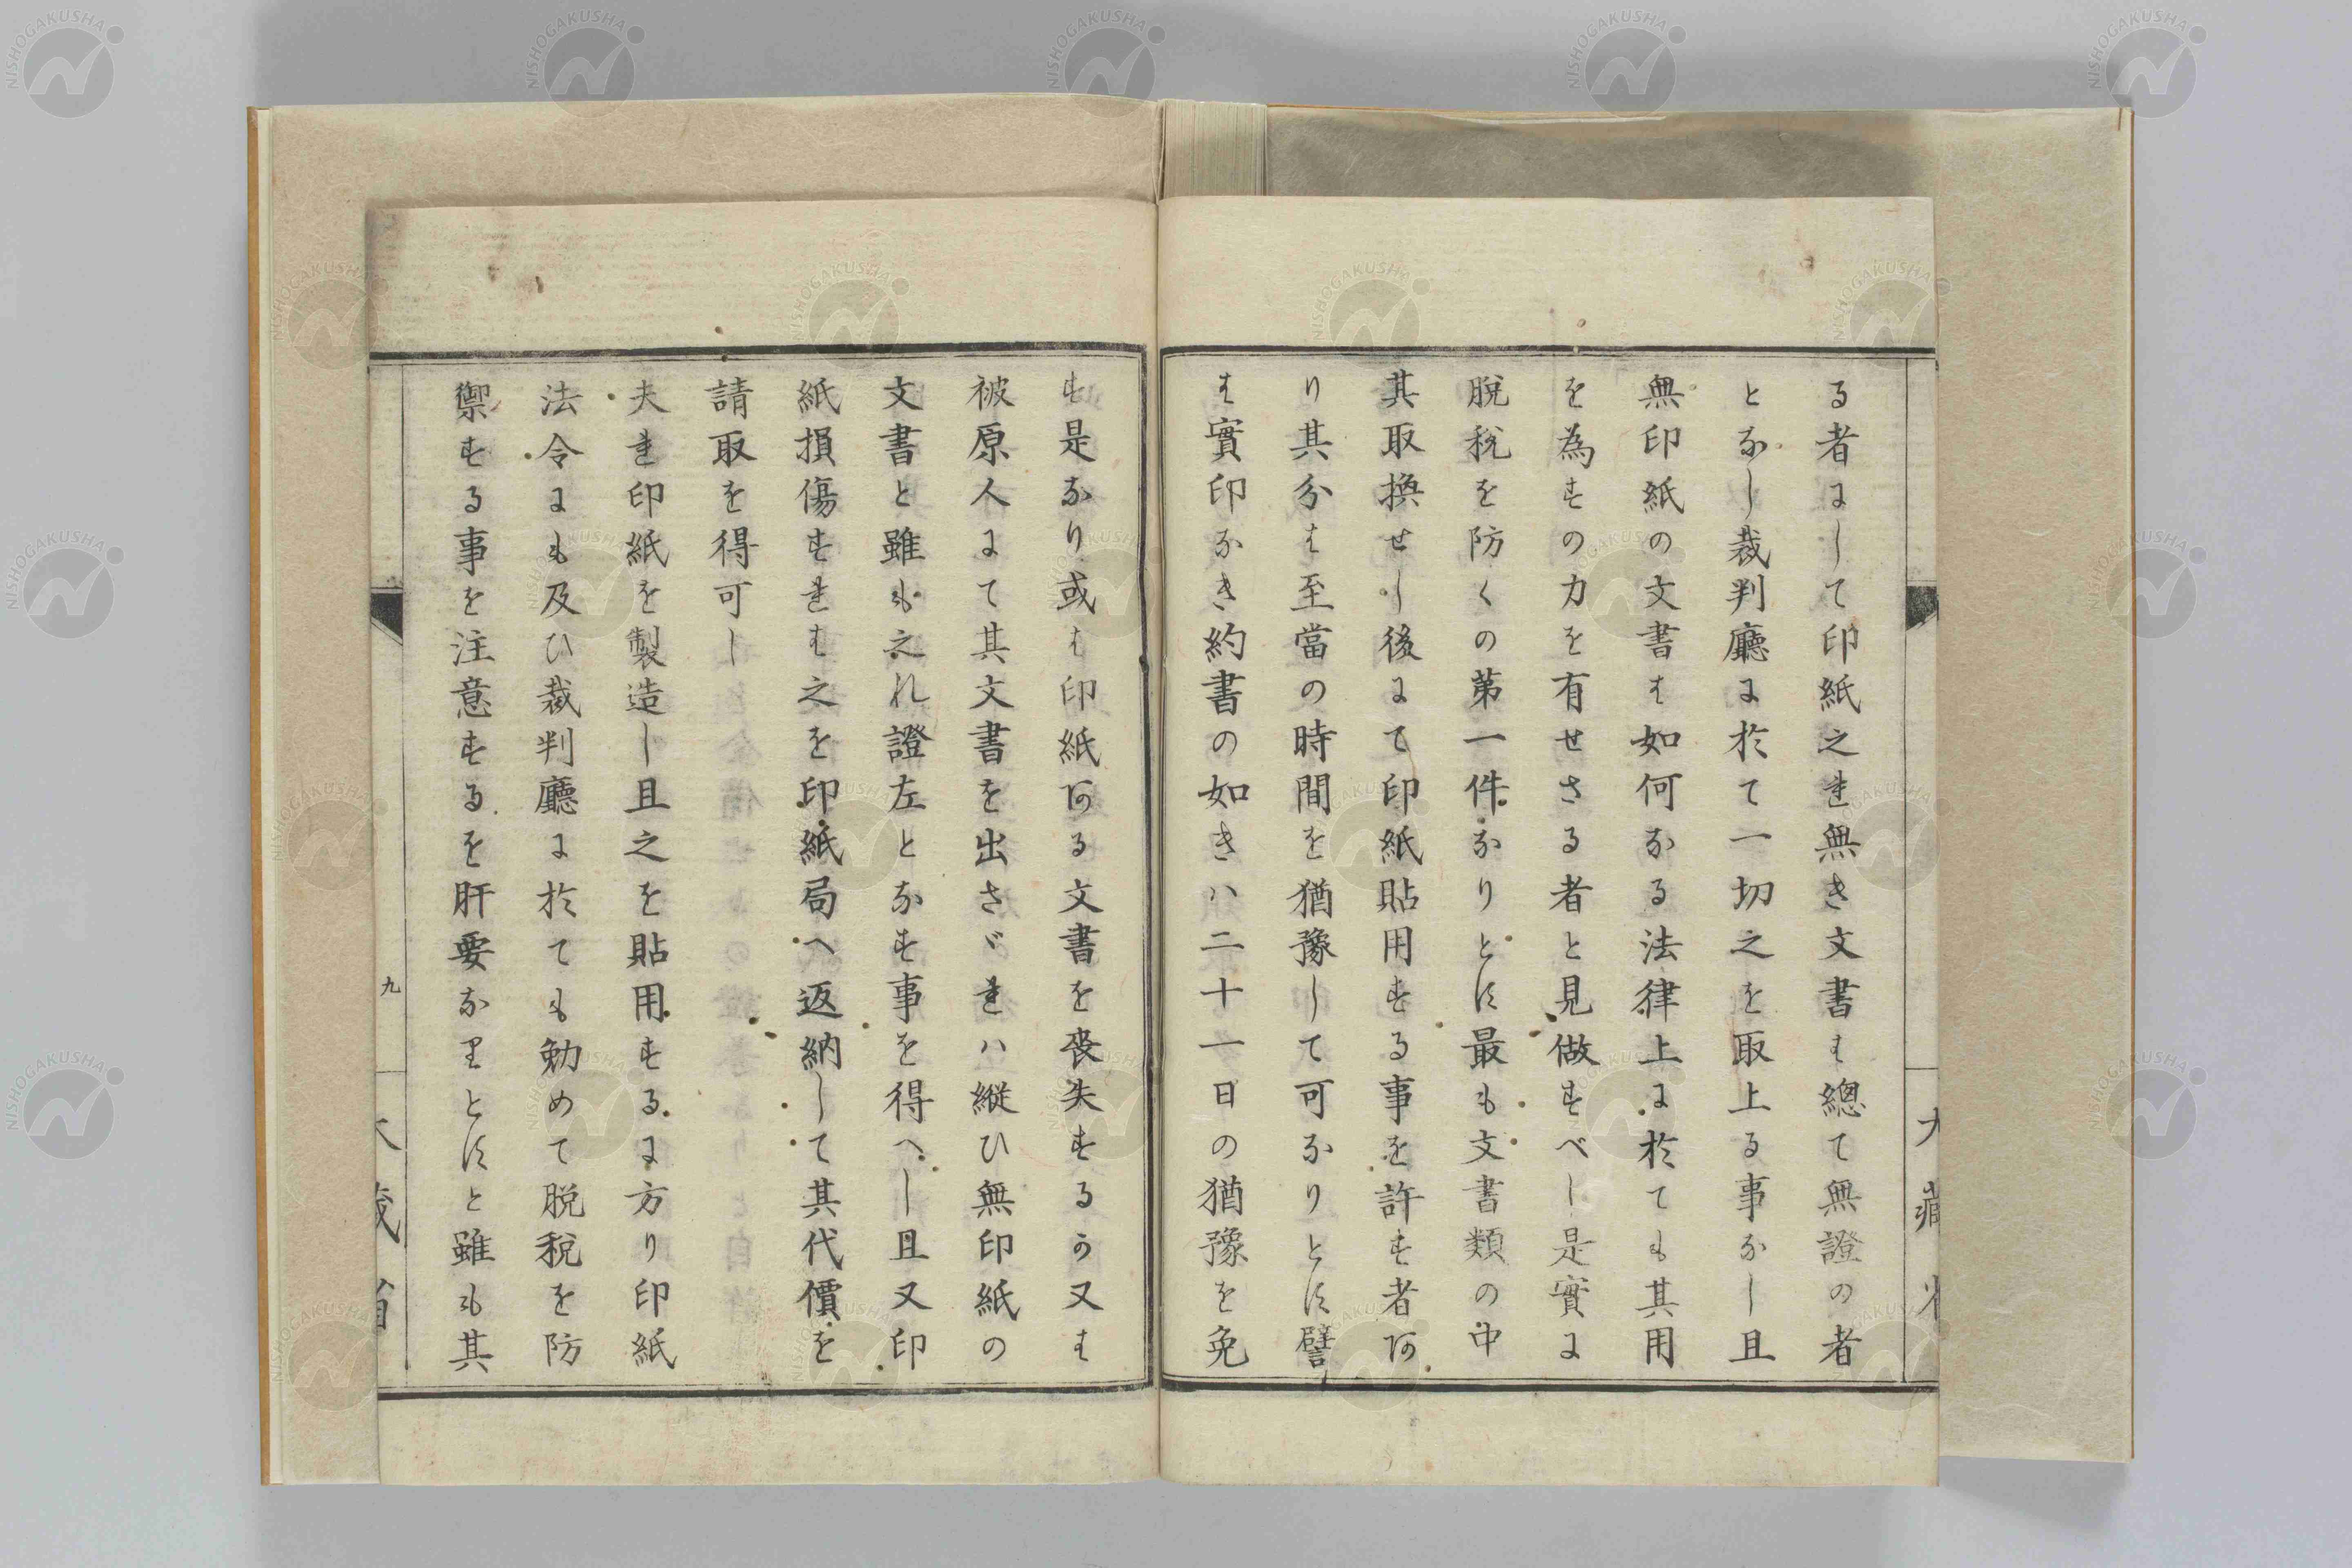 る者にして印紙之れ無き文書は總て無證の者
となし裁判廳に於て一切之を取上る事なし且
無印紙の文書は如何なる法律上に於ても其用
を為すの力を有せさる者と見做すべし是實に
脱稅を防くの第一件なりとす最も文書類の中
其取換せし後にて印紙貼用する事を許す者あ
り其分は至當の時間を猶豫して可なりとす譬
は實印なき約書の如きハ二十一日の猶豫を免
す是なり或は印紙ある文書を喪失するか又は
被原人にて其文書を出さゞれハ縦ひ無印紙の
文書と雖も之れ證左となす事を得へし且又印
紙損傷すれは之を印紙局へ返納して其代價を
請取を得可し
夫れ印紙を製造し且之を貼用するに方り印紙
法令にも及ひ裁判廳に於ても勉めて脱稅を防
禦する事を注意するを肝要なりとすと雖も其
九
大藏省
NISHOGAKUSHA